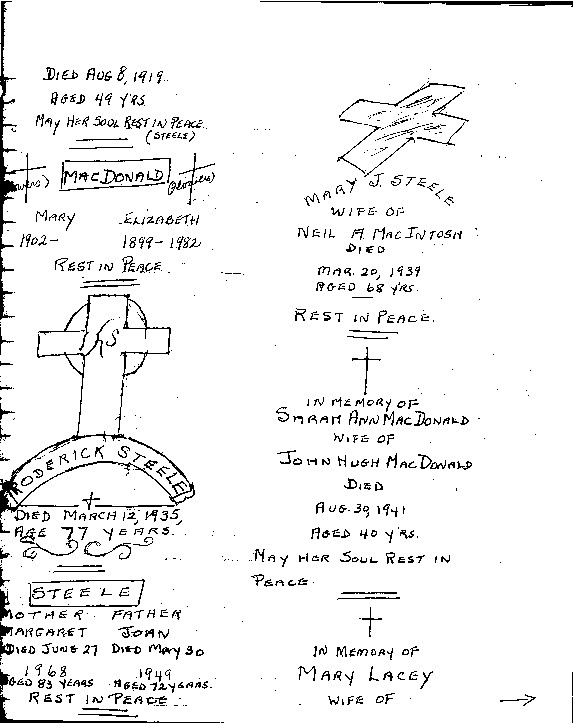 DIED AUG 8, 1919.
AGED 49 YRS.
MAY HER SOUL REST IN PEACE.
(STEELE)
MACDONALD
MARY ELIZABETH
1902- 1899-1982
REST IN PEACE.
RODERICK STEELE
DIED MARCH 12, 1935,
AGE 77 YEARS.
STEELE
MOTHER FATHER
MARGARET JOHN
DIED JUNE 27 DIED MAY 30
1968 1949
AGED 83 YEARS AGED 72 YEARS.
REST IN PEACE
MARY J. STEELE
WIFE OF
NEIL A. MACINTOSH
DIED
MAR. 20, 1939
AGED 68 YRS.
REST IN PEACE.
IN MEMORY OF
SARAH ANN MACDONALD
WIFE OF
JOHN HUGH MACDONALD
DIED
AUG. 30, 1941
AGED 40 YRS.
MAY HER SOUL REST IN
PEACE.
IN MEMORY OF
MARY LACEY
WIFE OF